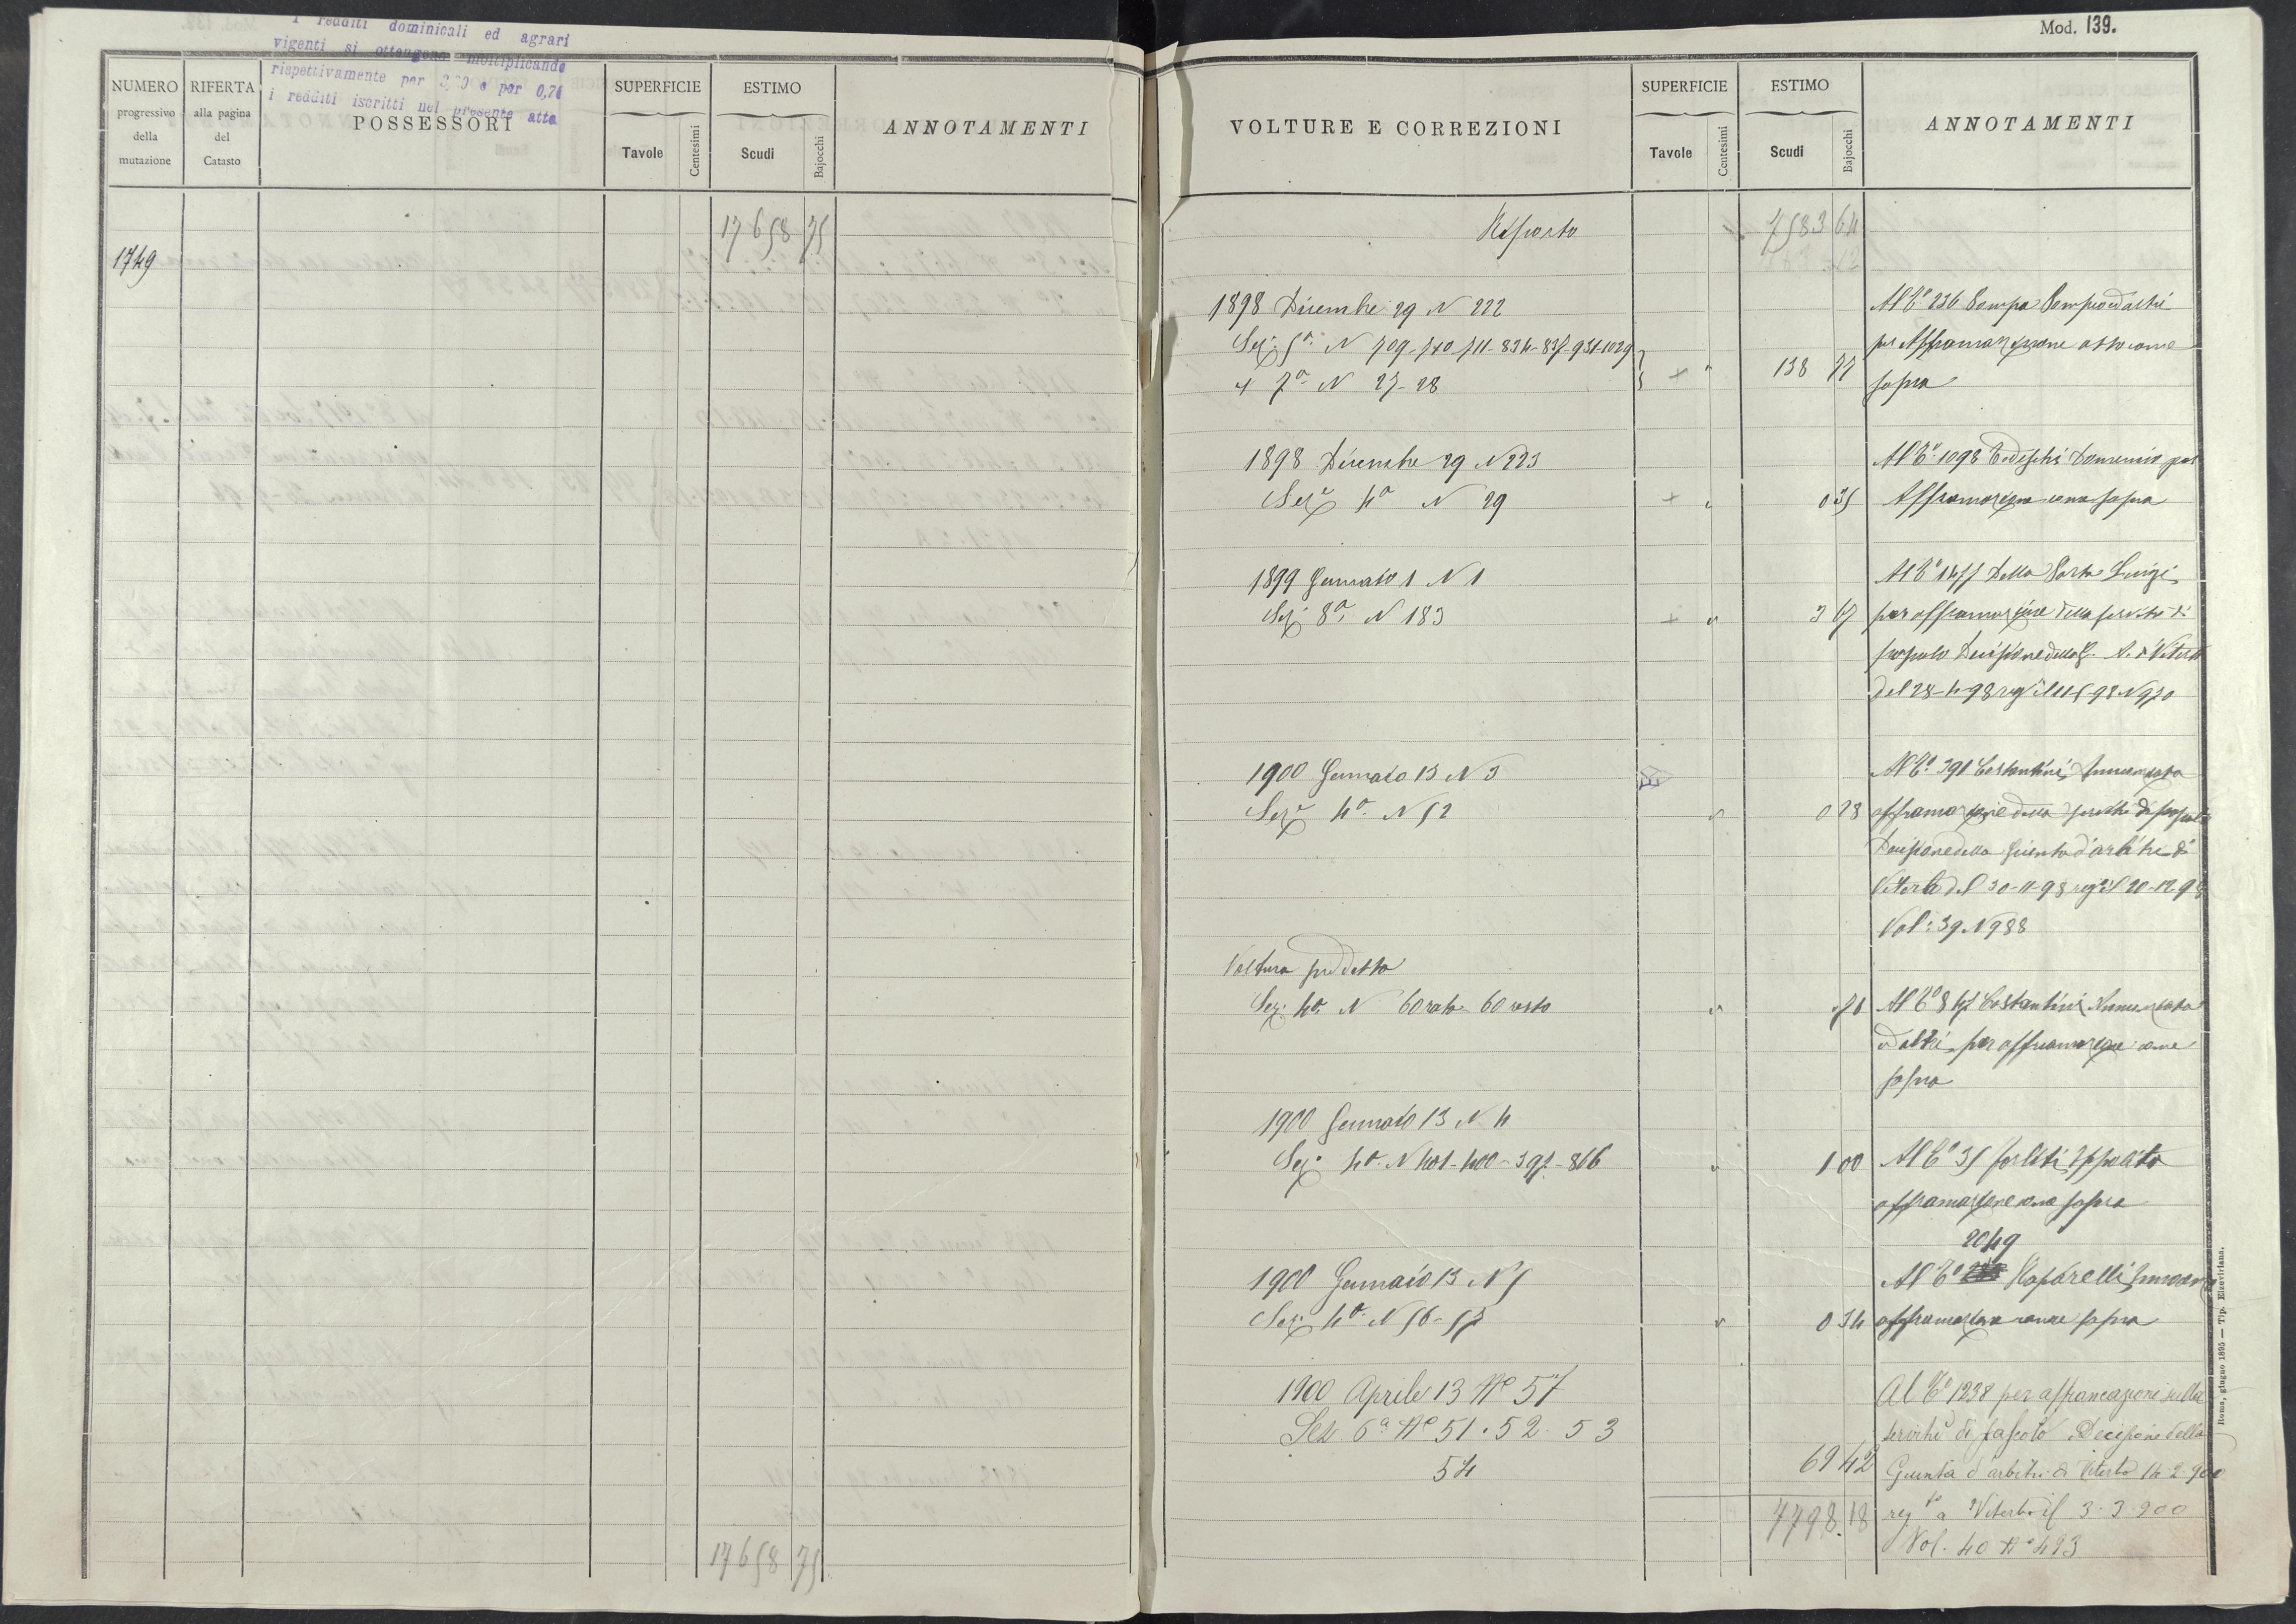 Mod. 139.
I redditi dominicali ed agrari
vigenti si ottengono moltiplicando
rispettivamente per e per 0,70
i redditi iscritti nel presente atto
NUMERO progressivo della mutazione
RIFERTA alla pagina del Catasto
POSSESSORI
SUPERFICIE Tavole Centesimi
ESTIMO Scudi Bajocchi
ANNOTAMENTI
17658 75
1749
17658 75
VOLTURE E CORREZIONI
SUPERFICIE Tavole Centesimi
ESTIMO Scudi Bajocchi
ANNOTAMENTI
Riporto 7583 64
1898 Dicembre 29 N 222
Al C.o 236 Pompa Pompeo ed altri
Sez. 5a N 709-710-711-834-837-931-1029
per Affrancazione come
" 7a N 27-28 138
sopra
1898 Dicembre 29 N 223
Al C.o 1098 Domenico per
Sez.e 4a N 29 0 35
Affrancazione come sopra
1899 Gennaio 1 N 1
Al C.o 1477 Della Porta Luigi
Sez. 8a N 183 3 67
per affrancazione della servitù di
pascolo Decisione della G. A. di Viterbo
del 28-4-98 reg il 11-5-98 N 970
1900 Gennaio 13 N 3
Al C.o 391 Costantini Annunziata
Sez.e 4a N 52 0 28
affrancazione della servitù di pascolo
Decisione della Giunta d'arbitri di
Viterbo del 30-11-98 reg il 20-12-98
Vol: 39 N 988
Voltura suddetta
Sez. 4a N 60 rata 60 resto
Al C.o 847 Costantini Annunziata
ed altri per affrancazione come
sopra
1900 Gennaio 13 N 4
Sez. 4a N 401-400-397-816 1 00
Al C.o 35 Forliti Ippolito
affrancazione come sopra
2049
1900 Gennaio 13 N 5
Al C.o
Sez. 4a N 56-57 0 34
affrancazione come sopra
1900 Aprile 13 No 57
Al C.o 1238 per affrancazione sulla
Sez 6a No 51.52 53
servitù di pascolo Decisione della
54 69 42
Giunta d'arbitri di Viterbo 14-2-900
7798.18
reg.to a Viterbo il 3.3.900
Vol. 40 No 493
Roma, giugno 1895 — Tip. Elzeviriana.